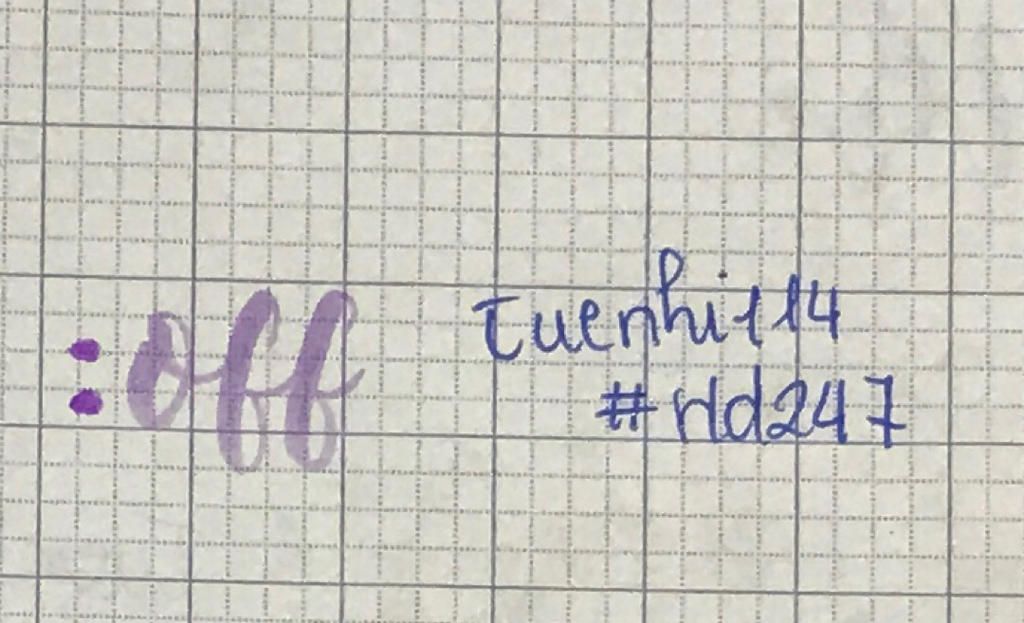 :off
tuenhi114
#rld247